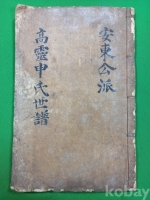 安東公派
高靈申氏世譜
kobay